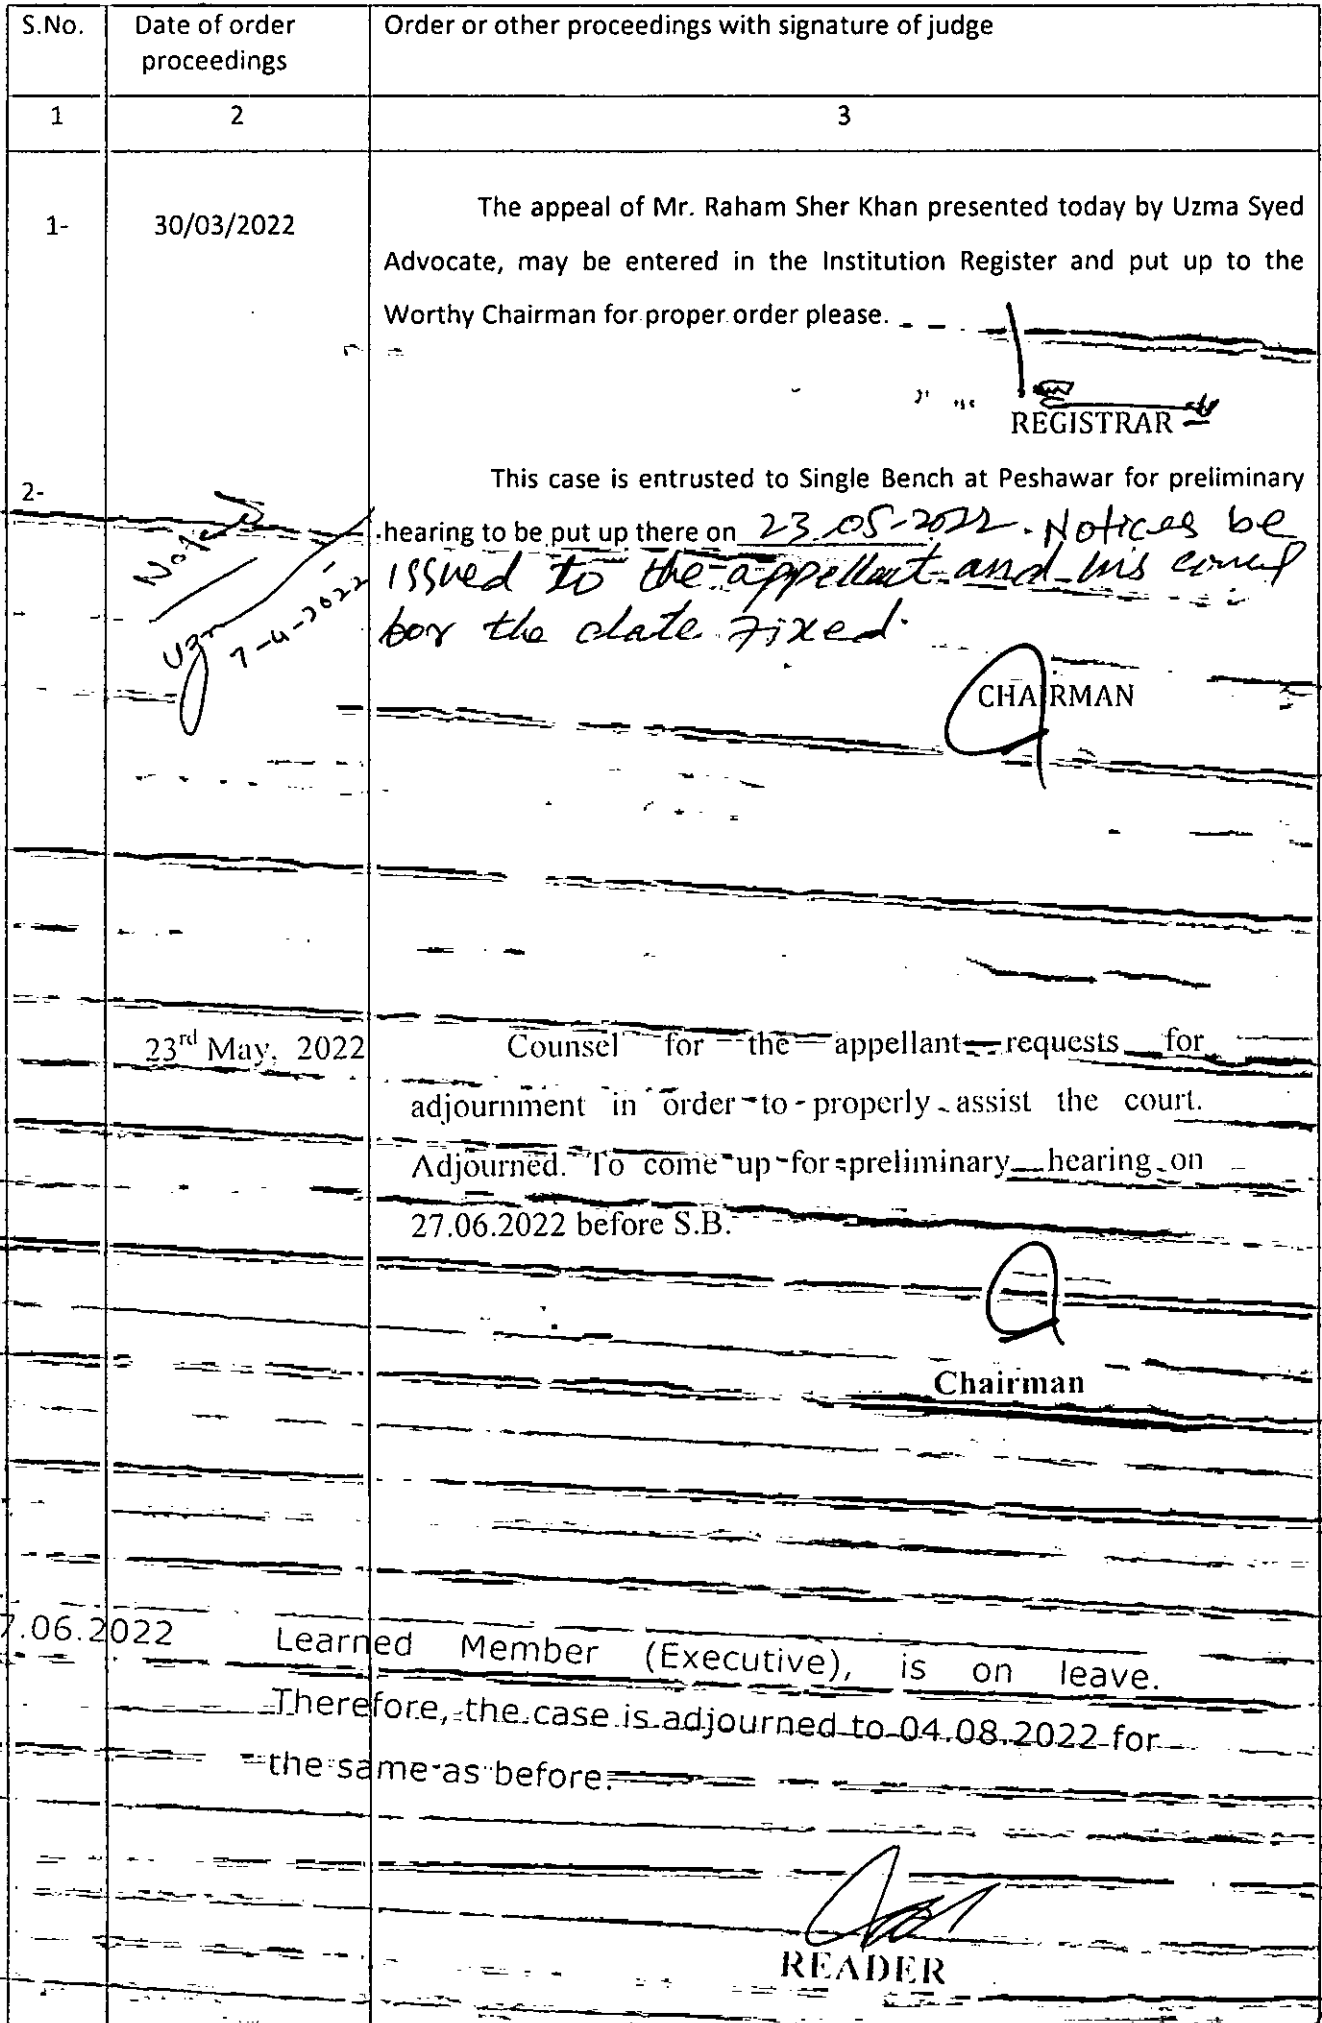 S.No.
Date of order
proceedings
Order or other proceedings with signature of judge
1
2
3
1-
30/03/2022
The appeal of Mr. Raham Sher Khan presented today by Uzma Syed
Advocate, may be entered in the Institution Register and put up to the
Worthy Chairman for proper order please.
REGISTRAR
2-
This case is entrusted to Single Bench at Peshawar for preliminary
hearing to be put up there on 23.05-2022. Notices be
issued to the appellant and his
for the date fixed.
Noted
7-4-2022
CHAIRMAN
23rd May, 2022
Counsel for the appellant requests for
adjournment in order to properly assist the court.
Adjourned. To come up for preliminary hearing on
27.06.2022 before S.B.
Chairman
7.06.2022
Learned Member (Executive), is on leave.
Therefore, the case is adjourned to 04.08.2022 for
the same as before.
READER